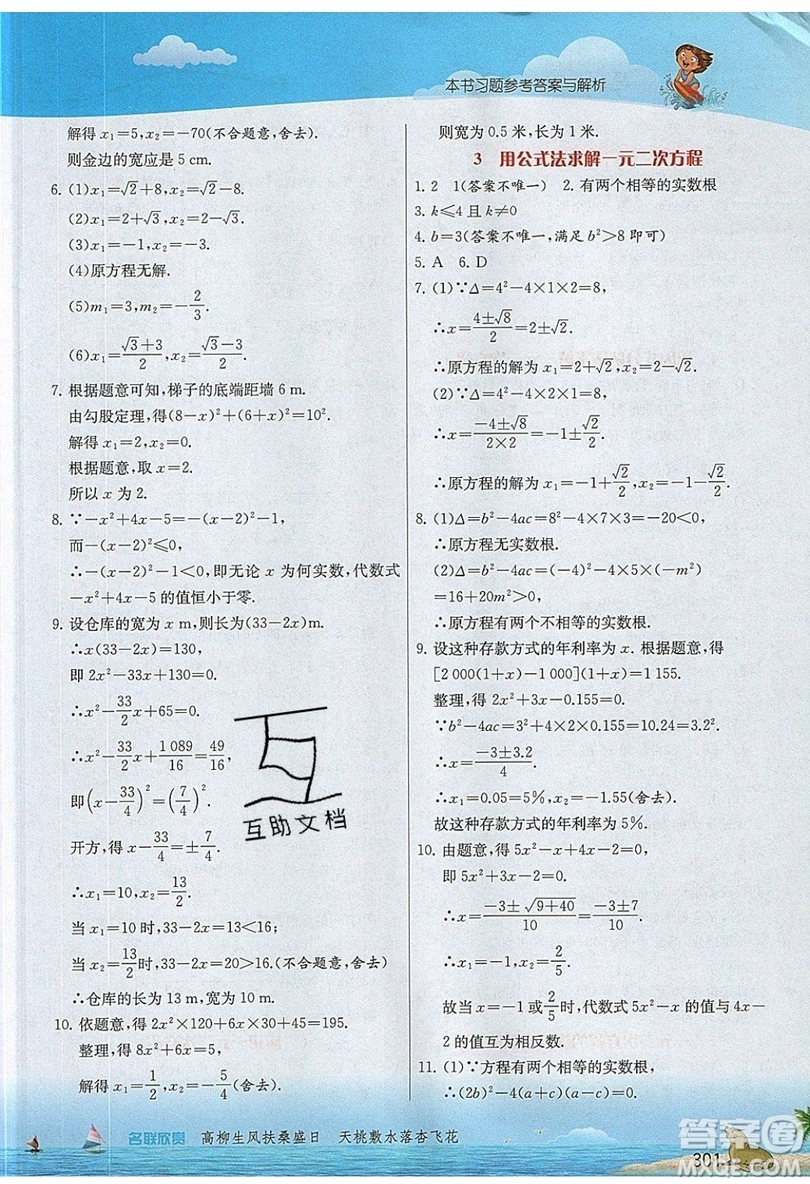 本书习题参考答案与解析
解得 x₁=5,x₂=−70(不合题意,舍去).
则金边的宽应是 5 cm.
6. (1)x₁=√2+8,x₂=√2−8.
(2)x₁=2+√3,x₂=2−√3.
(3)x₁=−1,x₂=−3.
(4)原方程无解.
(5)m₁=3,m₂=−2/3.
(6)x₁=(√3+3)/2,x₂=(√3−3)/2.
7. 根据题意可知,梯子的底端距墙 6 m.
由勾股定理,得(8−x)²+(6+x)²=10².
解得 x₁=2,x₂=0.
根据题意,取 x=2.
所以 x 为 2.
8. ∵−x²+4x−5=−(x−2)²−1,
而−(x−2)²≤0,
∴−(x−2)²−1<0,即无论 x 为何实数,代数式
−x²+4x−5 的值恒小于零.
9. 设仓库的宽为 x m,则长为(33−2x)m.
∴x(33−2x)=130,
即 2x²−33x+130=0.
∴x²−33/2x+65=0.
∴x²−33/2x+1 089/16=49/16,
即(x−33/4)²=(7/4)².
开方,得 x−33/4=±7/4.
∴x₁=10,x₂=13/2.
当 x₁=10 时,33−2x=13<16;
当 x₂=13/2时,33−2x=20>16.(不合题意,舍去)
∴仓库的长为 13 m,宽为 10 m.
10. 依题意,得 2x²×120+6x×30+45=195.
整理,得 8x²+6x=5,
解得 x₁=1/2,x₂=−5/4(不合题意,舍去).
则宽为 0.5 米,长为 1 米.
3 用公式法求解一元二次方程
1. 2 1(答案不唯一) 2. 有两个相等的实数根
3. k≤4 且 k≠0
4. b=3(答案不唯一,满足 b²>8 即可)
5. A 6. D
7. (1)∵Δ=4²−4×1×2=8,
∴x=(4±√8)/2=2±√2.
∴原方程的解为 x₁=2+√2,x₂=2−√2.
(2)∵Δ=4²−4×2×1=8,
∴x=(−4±√8)/(2×2)=−1±√2/2.
∴原方程的解为 x₁=−1+√2/2,x₂=−1−√2/2.
8. (1)Δ=b²−4ac=8²−4×7×3=−20<0,
∴原方程无实数根.
(2)Δ=b²−4ac=(−4)²−4×5×(−m²)
=16+20m²>0,
∴原方程有两个不相等的实数根.
9. 设这种存款方式的年利率为 x. 根据题意,得
[2 000(1+x)−1 000](1+x)=1 155.
整理,得 2x²+3x−0.155=0.
∵b²−4ac=3²−4×2×(−0.155)=10.24=3.2²,
∴x=(−3±3.2)/4.
∴x₁=0.05=5%,x₂=−1.55(舍去).
故这种存款方式的年利率为 5%.
10. 由题意,得 5x²−x+(4x−2)=0,
即 5x²+3x−2=0.
∴x=(−3±√(9+40))/10=(−3±7)/10.
∴x₁=−1,x₂=2/5.
故当 x=−1 或2/5时,代数式 5x²−x 的值与 4x−
2 的值互为相反数.
11. (1)∵方程有两个相等的实数根,
∴(2b)²−4(a−c)(a+c)=0.
互助文档
名联欣赏 高柳生风扶桑盛日 天桃数水落杏飞花
301
答案圈
MXQE.COM